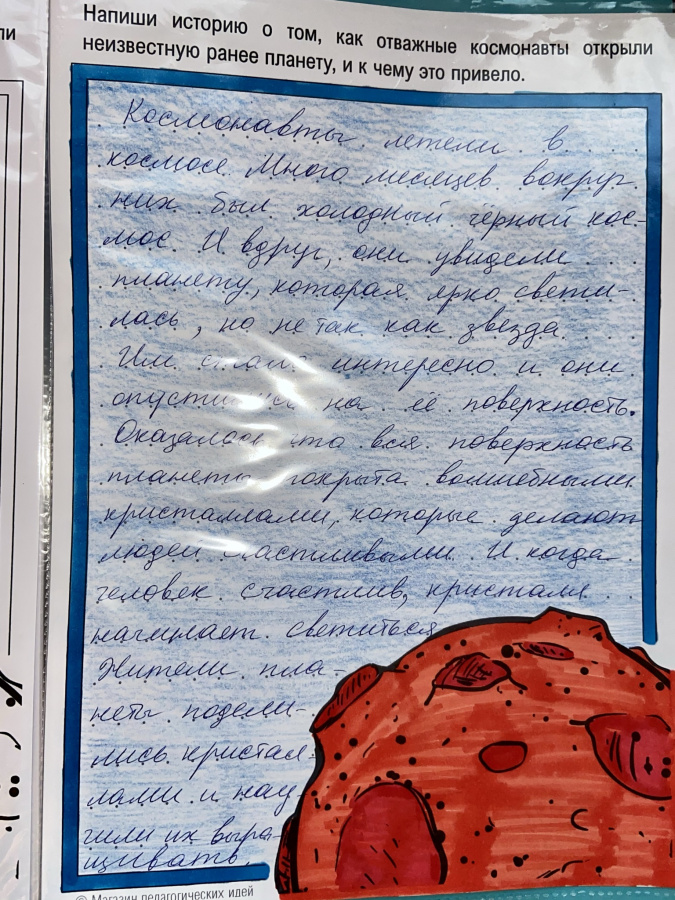 Напиши историю о том, как отважные космонавты открыли
неизвестную ранее планету, и к чему это привело.
Космонавты летели в
космосе. Много месяцев вокруг
них был холодный чёрный кос-
мос. И вдруг, они увидели
планету, которая ярко свети-
лась, но не так как звезда.
Им стало интересно и они
опустились на её поверхность.
Оказалось что вся поверхность
планеты покрыта волшебными
кристаллами, которые делают
людей счастливыми. И когда
человек счастлив, кристалл
начинает светиться.
Жители пла-
неты подели-
лись кристал-
лами и нау-
чили их выра-
щивать.
© Магазин педагогических идей